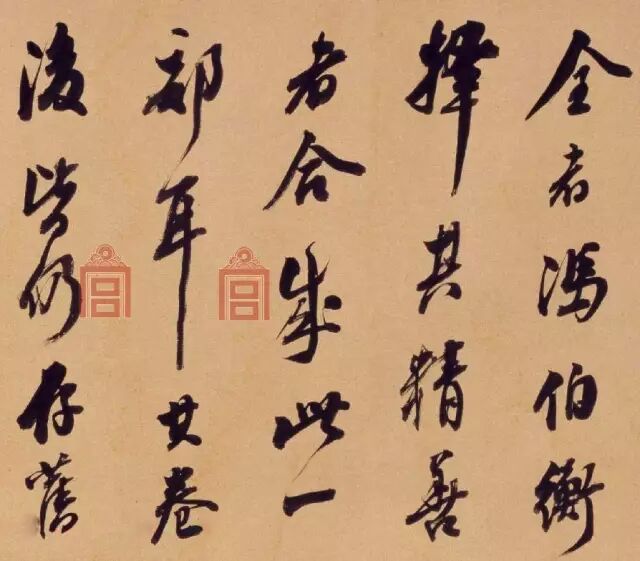 全者馮伯衡
擇其精善
者合成此一
部耳其卷
後皆仍存舊